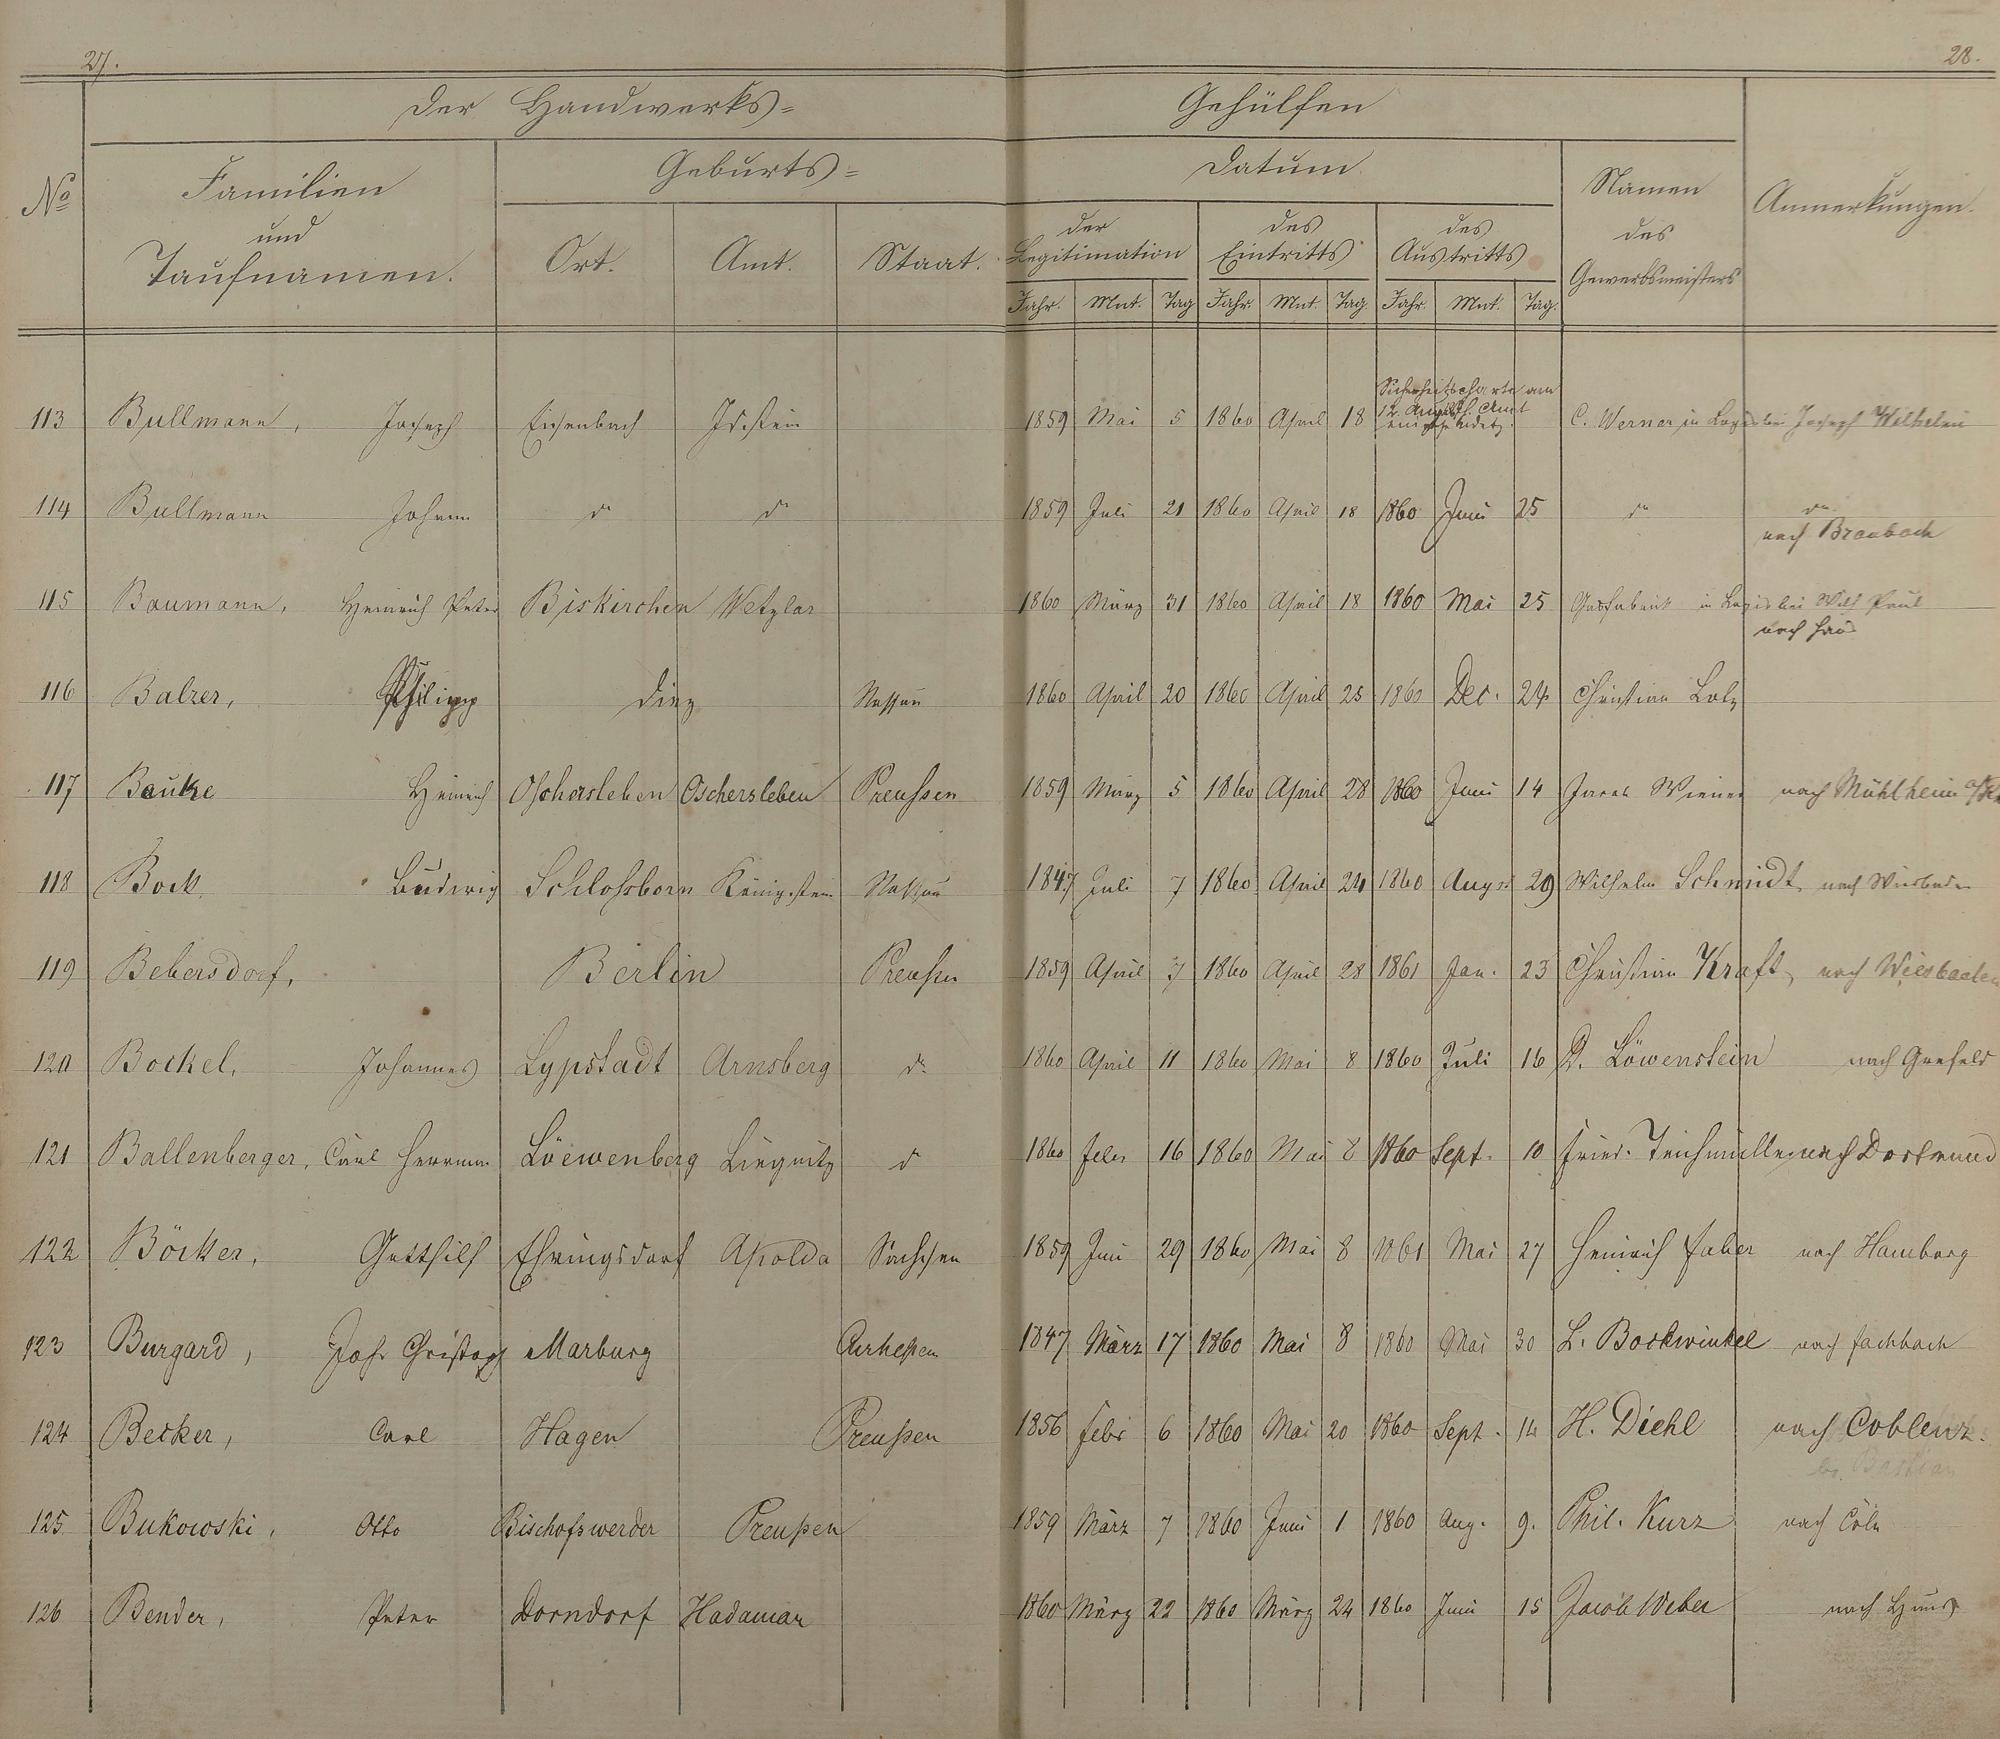 27. 28.
Der Handwerks= Gehülfen
No Familien und Taufnamen. Geburts= Datum Namen des Gewerbsmeisters Anmerkungen.
Ort. Amt. Staat. der Legitimation des Eintritts des Austritts
Jahr. Mnt. Tag Jahr. Mnt. Tag. Jahr. Mnt. Tag.
Sicherheitscharte am
113 Bullmann, Joseph Eisenbach Idstein 1859 Mai 5 1860 April 18 12 Amt C. Werner, in Logis bei Joseph Wilhelmi
114 Bullmann Johann do do 1859 Juli 21 1860 April 18 1860 Juni 25 do do
nach Braubach
115 Baumann, Heinrich Peter Biskirchen Wetzlar 1860 März 31 1860 April 18 1860 Mai 25 Gasfabrik in Logis bei Wilh Paul
nach Haus
116 Balzer, Philipp Diez Nassau 1860 April 20 1860 April 25 1860 Dec. 24 Christian Lotz
117 Bauke Heinrich Oschersleben Oschersleben Preußen 1859 März 5 1860 April 28 1860 Juni 14 Wiener nach Mühlheim
118 Bock Ludwig Schloßborn Königstein Nassau 1847 Juli 7 1860 April 24 1860 Augst 29 Wilhelm Schmidt, nach Wiesbaden
119 Bebersdorf, Berlin Preußen 1859 April 7 1860 April 28 1861 Jan. 23 Christian Kraft, nach Wiesbaden
120 Bockel, Johannes Lypstadt Arnsberg do 1860 April 11 1860 Mai 8 1860 Juli 16 D. Löwenstein nach Crefeld
121 Ballenberger, Carl Herrman Löewenberg Liegnitz do 1860 Febr 16 1860 Mai 8 1860 Sept. 10 Fried. Teichmüller nach Dortmund
122 Böcker, Gotthilf Ehringsdorf Apolda Sachsen 1859 Juni 29 1860 Mai 8 1861 Mai 27 Heinrich Faber nach Hamburg
123 Burgard, Joh. Christoph Marburg Curhessen 1847 März 17 1860 Mai 8 1860 Mai 30 L. Bockwinkel nach Fachbach
124 Becker, Carl Hagen Preußen 1856 Febr 6 1860 Mai 20 1860 Sept. 14 H. Diehl nach Coblenz.
Bastian
125 Bukowski, Otto Bischofswerder Preußen 1859 März 7 1860 Juni 1 1860 Aug. 9. Phil. Kurz nach Cöln
126 Bender, Peter Dorndorf Hadamar 1860 März 22 1860 März 24 1860 Juni 15 Jacob Weber nach Haus